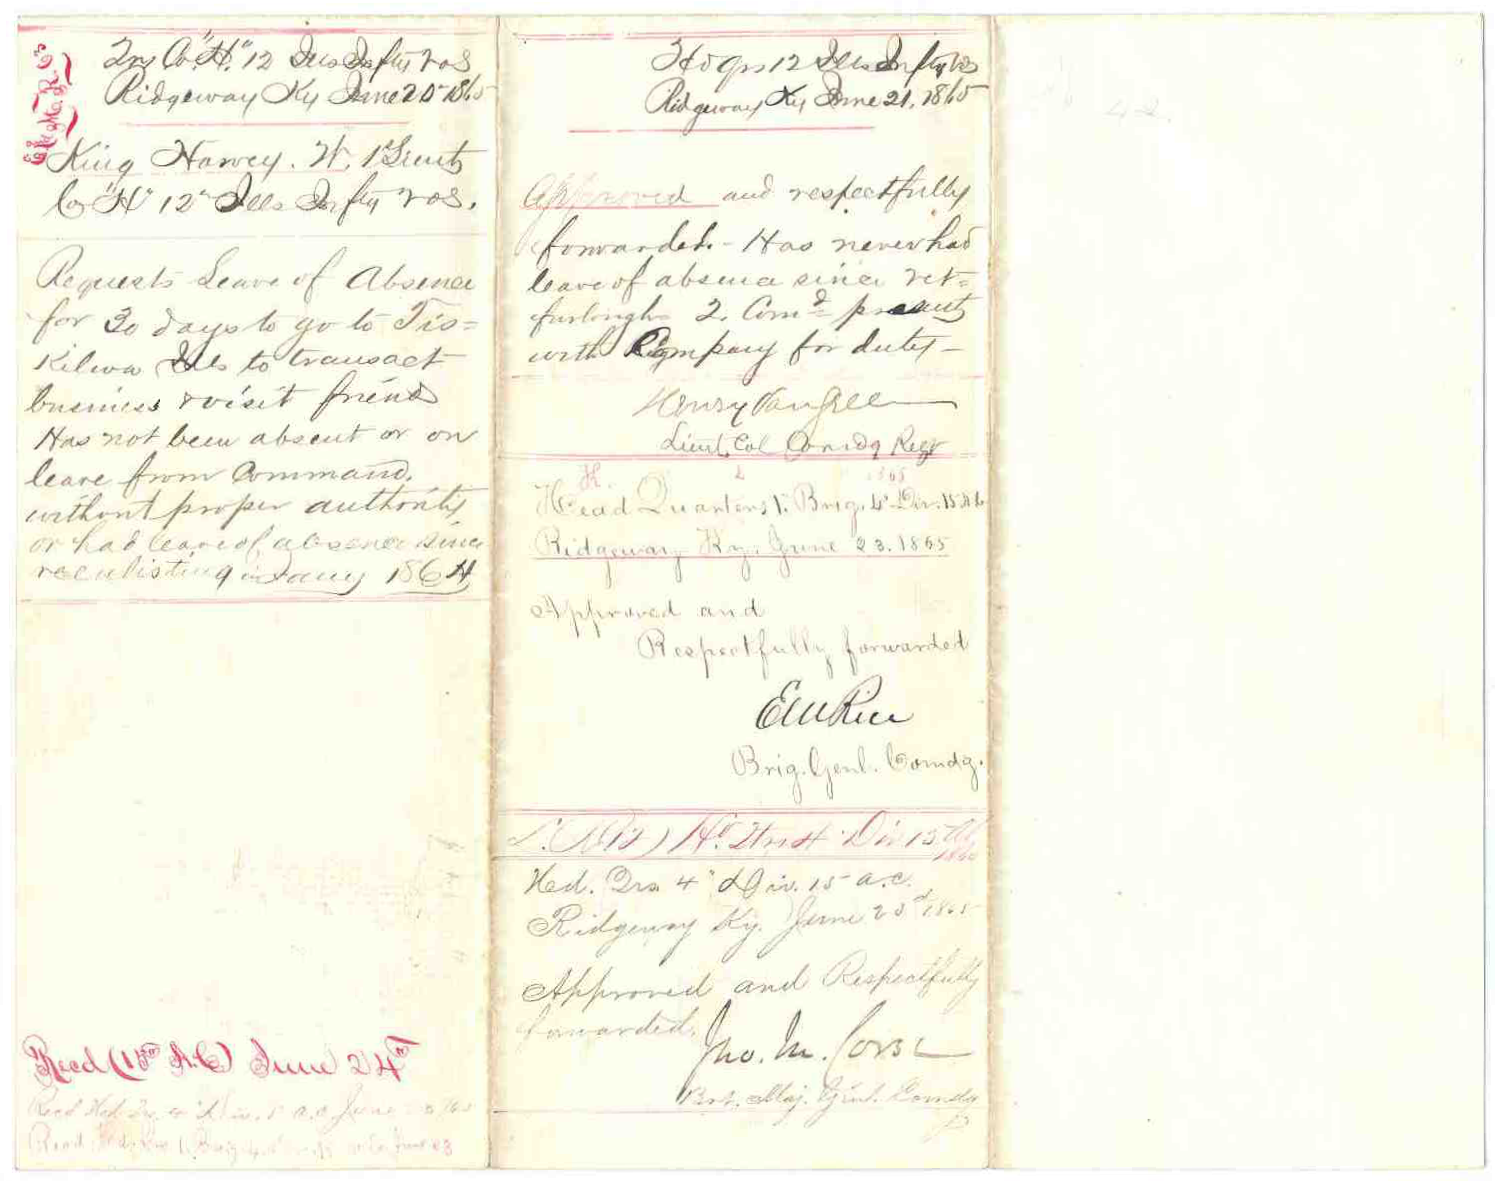 Qrs Co. "H." 12 Ills Infty Vols
Ridgeway Ky June 20 1865
King Harvey. W. 1st Lieut
Co "H" 12" Ills Infty Vols.
Requests Leave of Absence
for 30 days to go to Tis=
Kilwa Ills to transact
business & visit friends
Has not been absent or on
leave from Command.
without proper authority
or had leave of absence since
reenlisting in Jany 1864
Recd (15th A.C.) June 24th
Recd Hed. Qrs 4" Div. 15 A.C. June
Recd Hed. Qrs 1. Brig. 4 June 23
Hd Qrs 12 Ills Infty Vols
Ridgeway Ky June 21. 1865
Approved and respectfully
forwarded. - Has never had
leave of absence since vet=
furlough. 2. Comd present
with Company for duty -
Henry Van Sellar
Lieut. Col Comdg Regt
Head Quarters 1. Brig. 4" Div. 15 A.C.
Ridgeway Ky. June 23. 1865
Approved and
Respectfully forwarded
E W Rice
Brig. Genl. Comdg.
Hd. Qrs 4 Div 15 A.C.
1865
Hed. Qrs 4" Div. 15 a.c.
Ridgeway Ky. June 23d 1865
Approved and Respectfully
forwarded.
Jno. M. Corse
Bvt. Maj. Genl. Comdg
42.